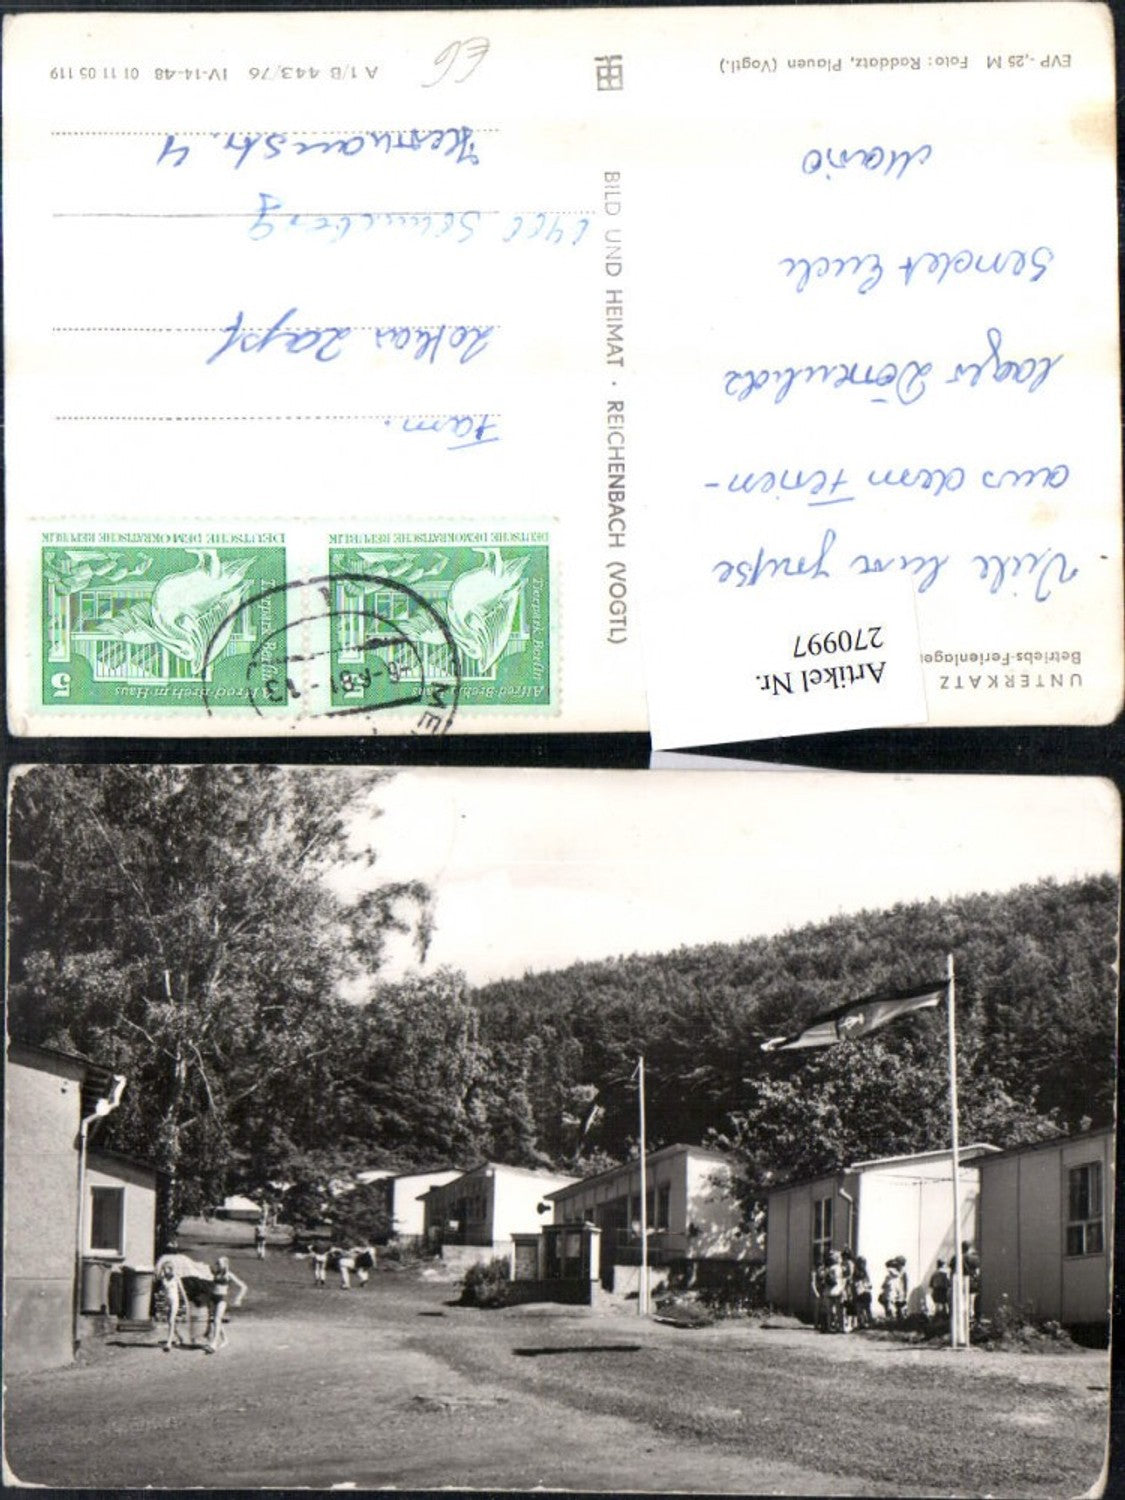 UNTERKATZ
Betriebs-Ferienlager
Artikel Nr.
270997
Viele liebe Grüße
aus dem Ferien-
lager Dörrenholz
sendet Euch
Mario
EVP -,25 M Foto: Raddatz, Plauen (Vogtl.)
BILD UND HEIMAT · REICHENBACH (VOGTL)
Alfred-Brehm-Haus
Tierpark Berlin
5
DEUTSCHE DEMOKRATISCHE REPUBLIK
Alfred-Brehm-Haus
Tierpark Berlin
5
DEUTSCHE DEMOKRATISCHE REPUBLIK
ME
81-
Fam.
Lothar Zapf
Hermannstr. 4
A 1/B 443/76 IV-14-48 01 11 05 119